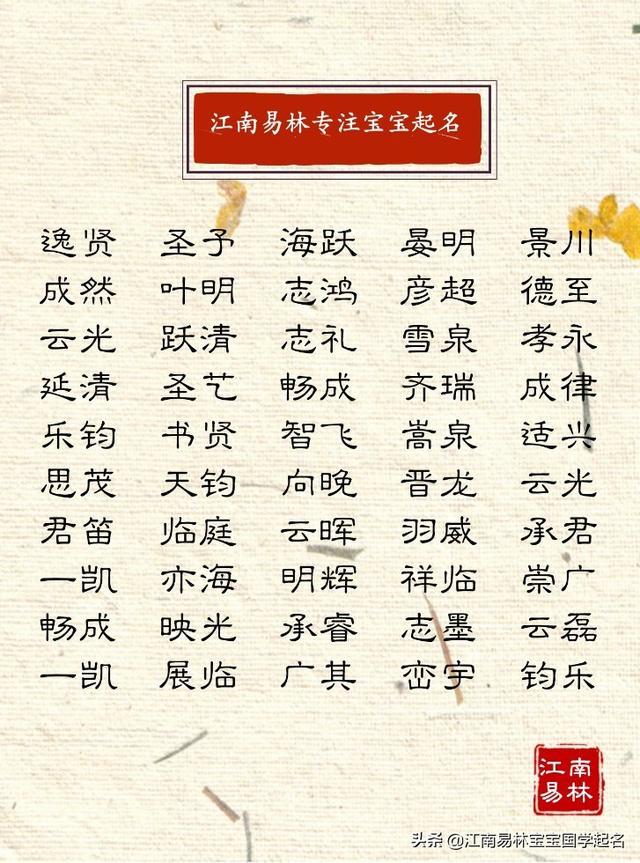 江南易林专注宝宝起名
逸贤 圣予 海跃 晏明 景川
成然 叶明 志鸿 彦超 德至
云光 跃清 志礼 雪泉 孝永
延清 圣艺 畅成 齐瑞 成律
乐钧 书贤 智飞 嵩泉 适兴
思茂 天钧 向晚 晋龙 云光
君笛 临庭 云晖 羽威 承君
一凯 亦海 明辉 祥临 崇广
畅成 映光 承睿 志墨 云磊
一凯 展临 广其 峦宇 钧乐
江南
易林
头条 @江南易林宝宝国学起名